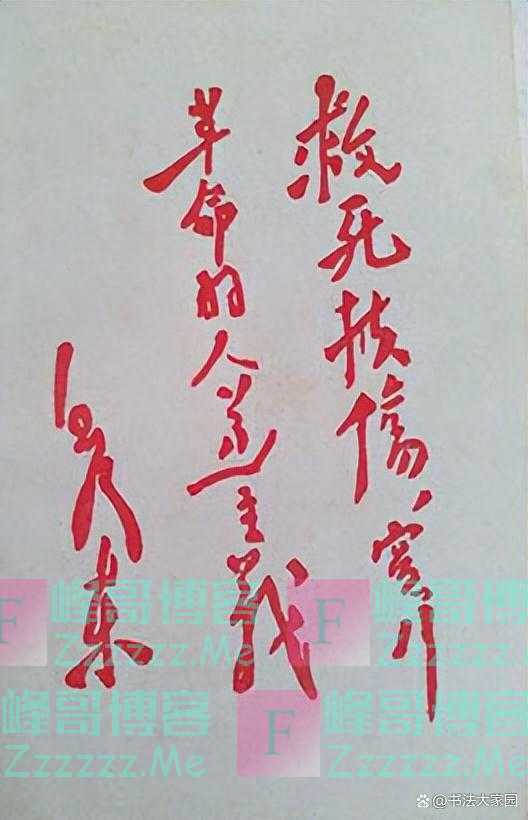 救死扶傷、實行
革命的人道主義
毛澤東
F 峰哥博客 Zzzzzz.Me
F 峰哥博客 Zzzzzz.Me
峰哥博客 Zzzzzz.Me
F 峰哥博客 Zzzzzz.Me
@书法大家园